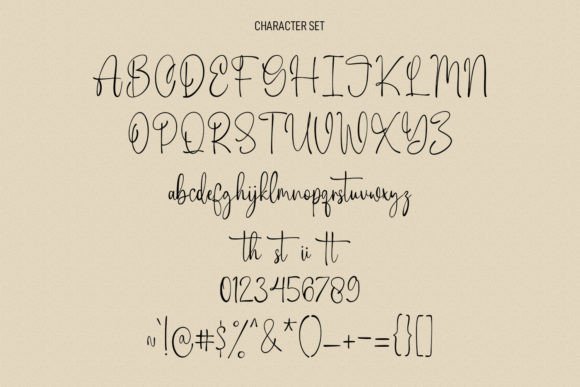 CHARACTER SET
ABCDEFGHIJKLMN
OPQRSTUVWXYZ
abcdefghijklmnopqrstuvwxyz
th st ii tt
0123456789
~`!@#$%^&*()_+-={}[]